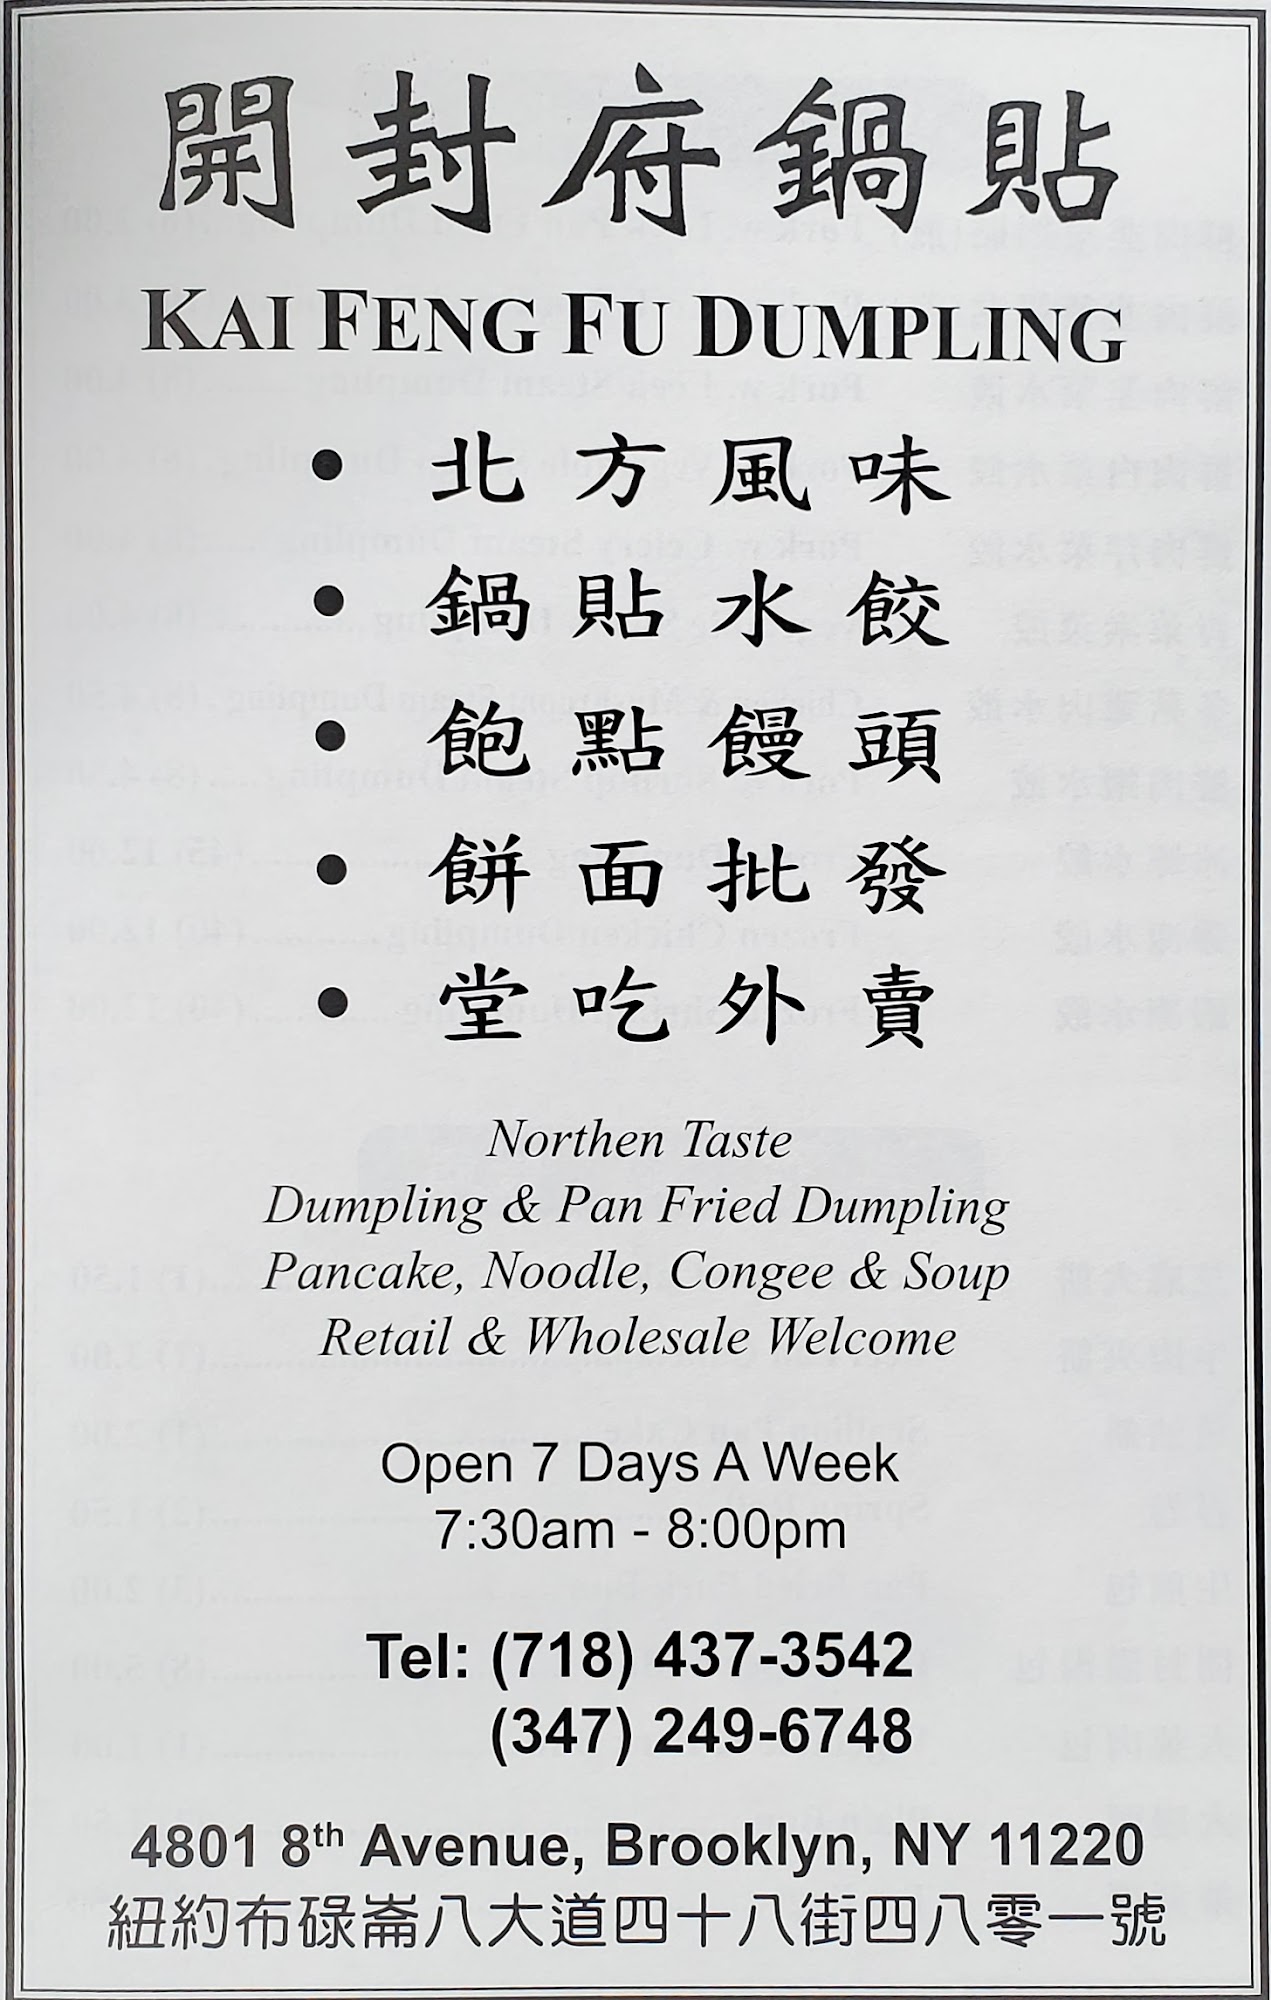 開封府鍋貼
KAI FENG FU DUMPLING
• 北方風味
• 鍋貼水餃
• 飽點饅頭
• 餅面批發
• 堂吃外賣
Northen Taste
Dumpling & Pan Fried Dumpling
Pancake, Noodle, Congee & Soup
Retail & Wholesale Welcome
Open 7 Days A Week
7:30am - 8:00pm
Tel: (718) 437-3542
(347) 249-6748
4801 8th Avenue, Brooklyn, NY 11220
紐約布碌崙八大道四十八街四八零一號